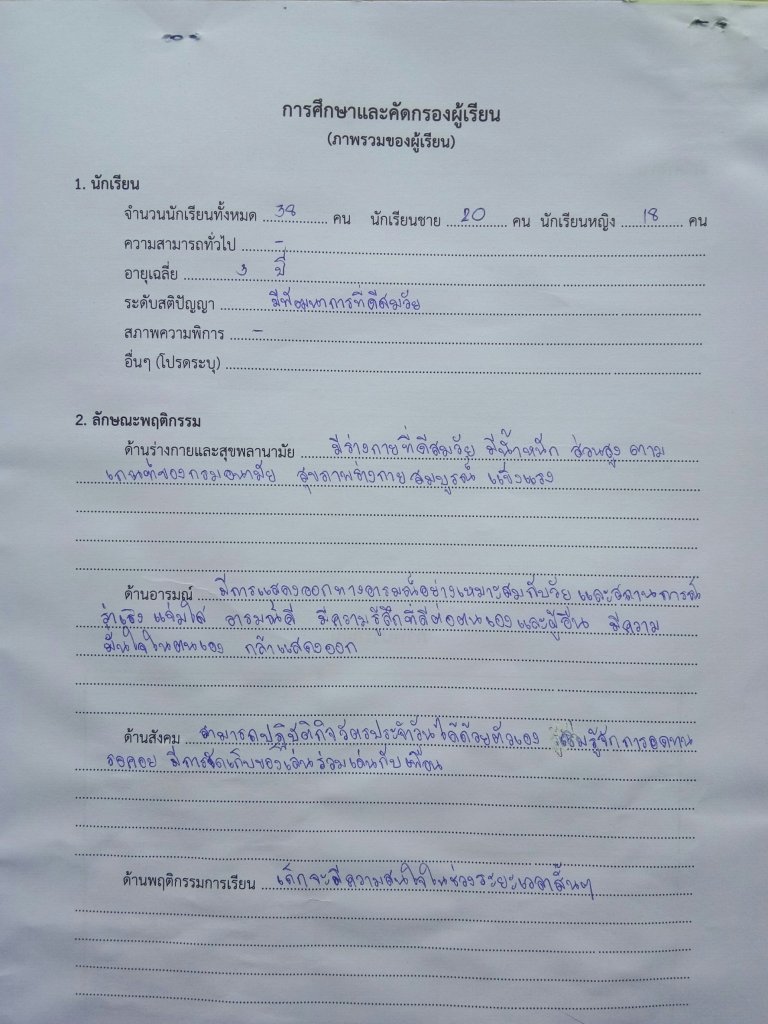 การศึกษาและคัดกรองผู้เรียน
(ภาพรวมของผู้เรียน)
1. นักเรียน
จำนวนนักเรียนทั้งหมด 38 คน นักเรียนชาย 20 คน นักเรียนหญิง 18 คน
ความสามารถทั่วไป -
อายุเฉลี่ย 3 ปี
ระดับสติปัญญา มีพัฒนาการที่ดีสมวัย
สภาพความพิการ -
อื่นๆ (โปรดระบุ)
2. ลักษณะพฤติกรรม
ด้านร่างกายและสุขพลานามัย มีร่างกายที่ดีสมวัย มีน้ำหนัก ส่วนสูง ตาม
เกณฑ์ของกรมอนามัย สุขภาพร่างกายสมบูรณ์ แข็งแรง
ด้านอารมณ์ มีการแสดงออกทางอารมณ์อย่างเหมาะสมกับวัย และสถานการณ์
ร่าเริง แจ่มใส อารมณ์ดี มีความรู้สึกที่ดีต่อตนเองและผู้อื่น มีความ
มั่นใจในตนเอง กล้าแสดงออก
ด้านสังคม สามารถปฏิบัติกิจวัตรประจำวันได้ด้วยตัวเอง เริ่มรู้จักการอดทน
รอคอย มีการจัดเก็บของเล่น ร่วมเล่นกับเพื่อน
ด้านพฤติกรรมการเรียน เด็กจะมีความสนใจในช่วงระยะเวลาสั้นๆ